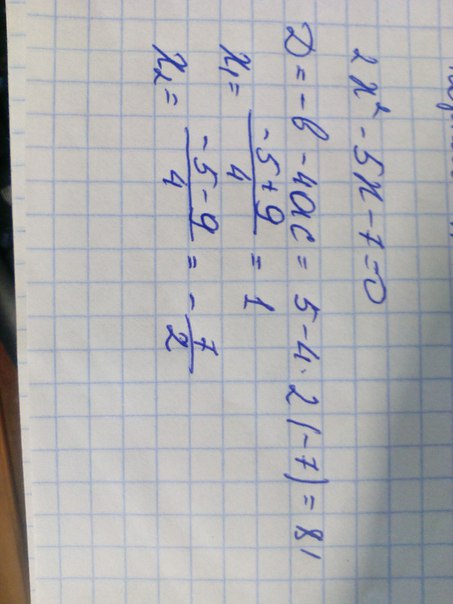 2x² - 5x - 7 = 0
D = -b - 4ac = 5 - 4 · 2 (-7) = 81
x₁ = (-5 + 9)/4 = 1
x₂ = (-5 - 9)/4 = - 7/2